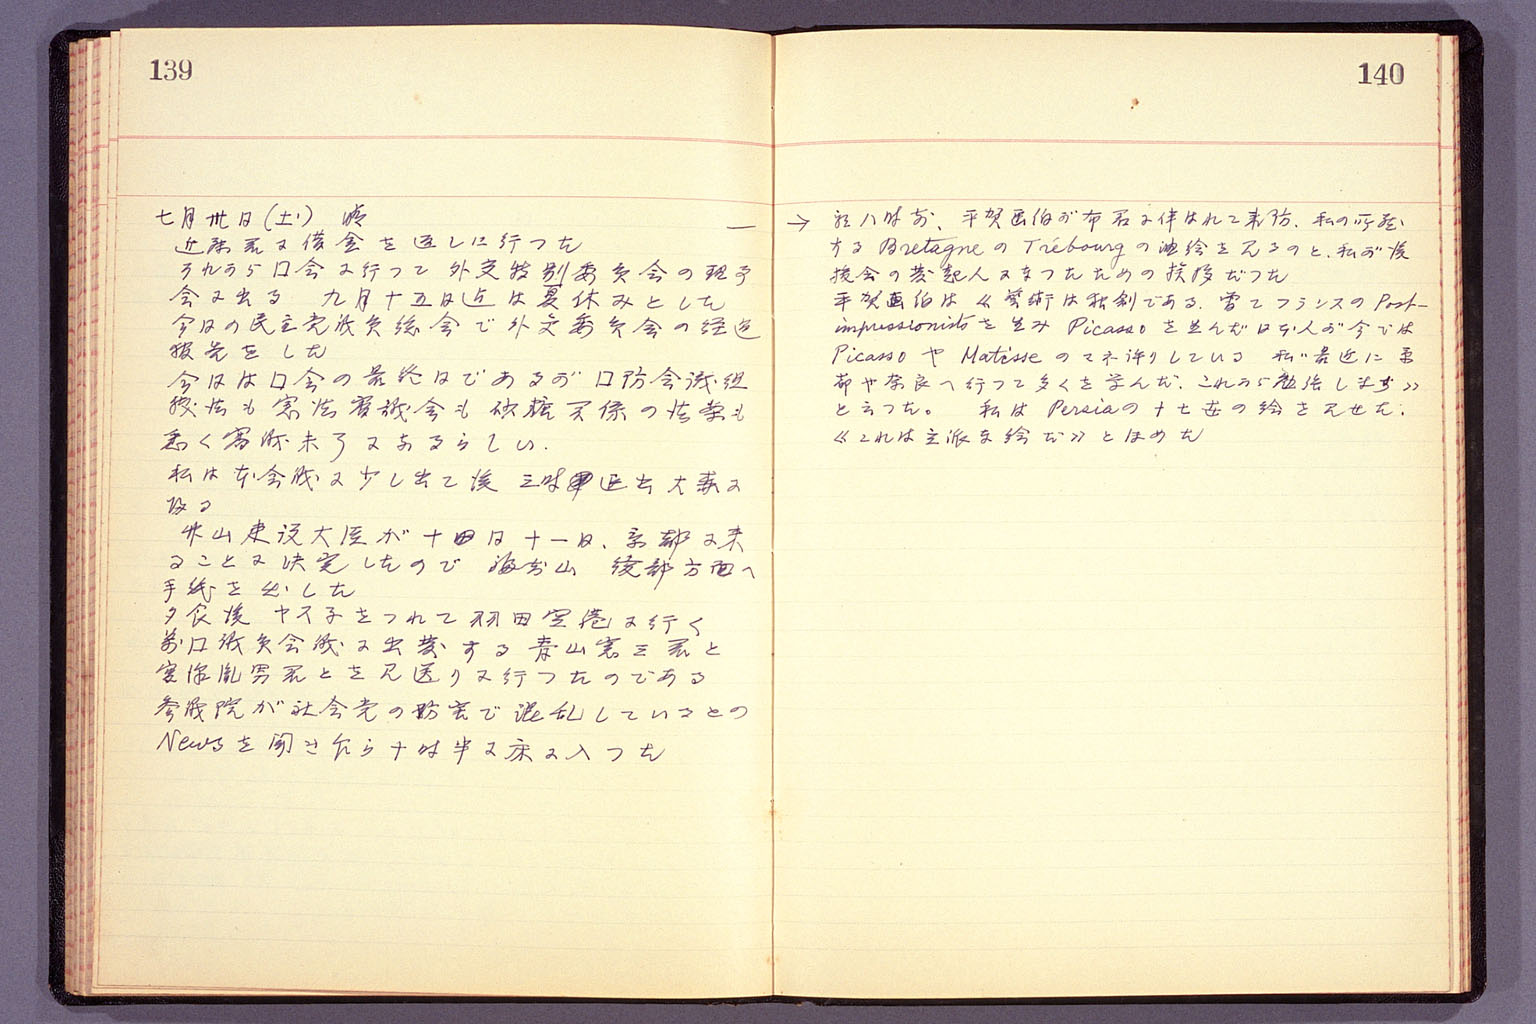 139
七月卅日(土) 晴
近藤君ヌ借金を返しに行つた
それから口会ヌ行つて 外交特別委員会の理事
会ヌ出る 九月十五日迄は夏休みとした
今日の民主党議員総会で外交委員会の経過
報告をした
今日は口会の最終日であるが 口防会議組
織法も憲法審議会も砂糖関係の法案も
悉く審議未了ヌおるらしい.
私は本会議ヌ少し出て後 三時半退出大森ヌ
帰る
竹山建設大臣が十四日十一日、京都ヌ来
ることヌ決定したので 福知山 綾部方面へ
手紙を出した
夕食後 ヤス子をつれて羽田空港ヌ行く
萬口議員会議ヌ出発する 青山憲三君と
實保胤男君とを見送りヌ行つたのである
参議院が社会党の妨害で混乱しているとの
Newsを聞き乍ら十時半ヌ床ヌ入つた
140
→ 朝八時前、平賀画伯が布君ヌ伴はれて来訪、私の所蔵
する BretagneのTrébourgの油絵を見るのと、私が後
援会の発起人ヌなつたための挨拶だつた
平賀画伯は《芸術は独創である. 嘗てフランスのPost-
impressionistsを生み Picassoを生んだ 日本人が今では
Picasso や Matisse のマネ許りしている 私が最近に京
都や奈良へ行つて多くを学んだ. これから勉強します》
と云つた。 私は Persiaの十七世の絵を見せた.
《これは立派な絵だ》とほめた